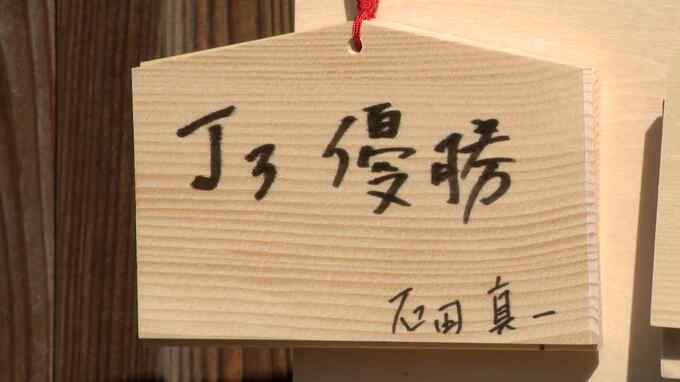 J3 優勝
石田 真一